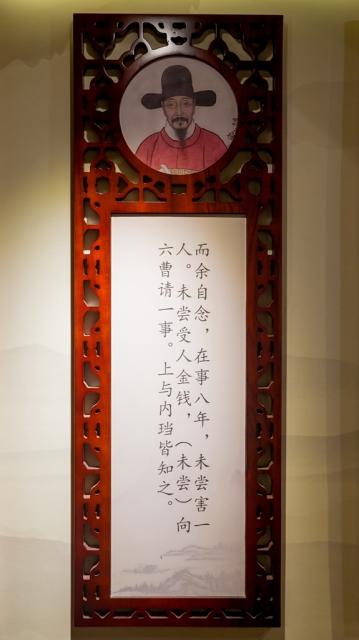 而余自念，在事八年，未尝害一
人。未尝受人金钱，（未尝）向
六曹请一事。上与内珰皆知之。